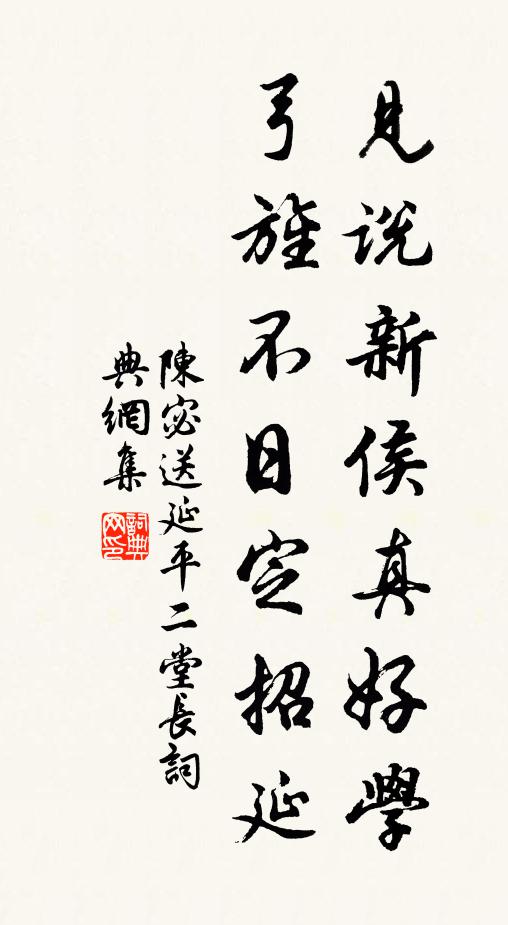 見説新侯真好學
弓旌不日定招延
陳宓送延平二堂長詞
典網集
詞典網印